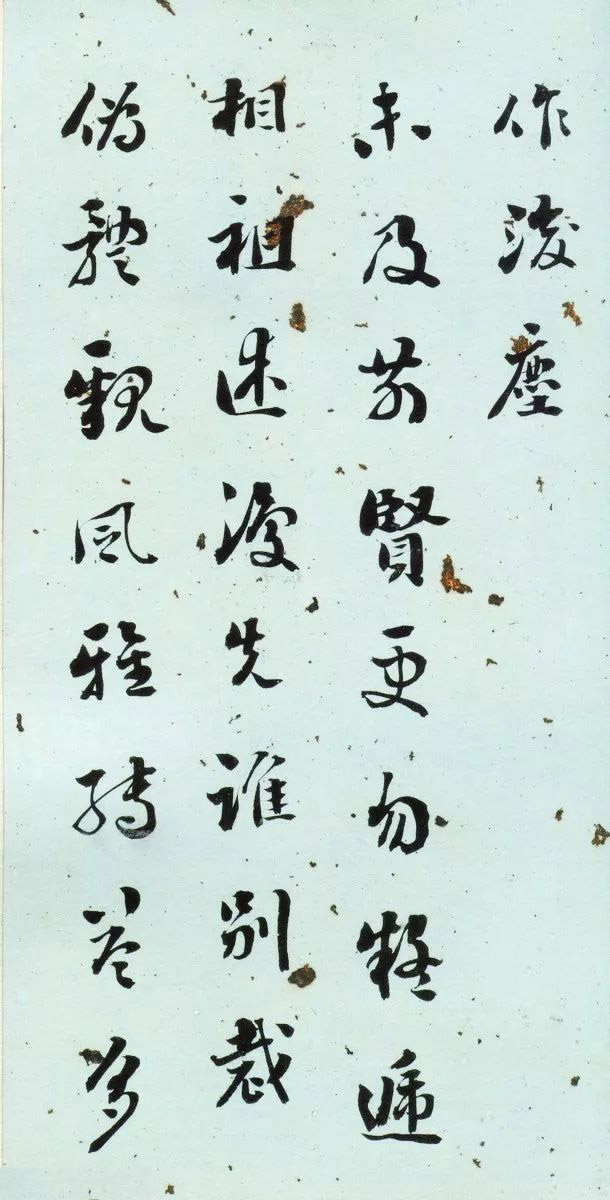 作後塵
未及前賢更勿疑遞
相祖述復先誰別裁
偽體親風雅轉益多